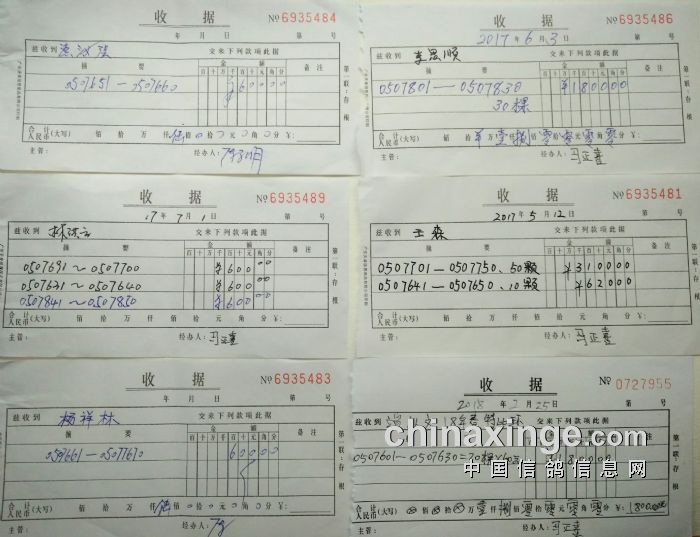 收 据 № 6935484
年 月 日 第 号
兹收到 交来下列款项此据
摘 要 金 额 备 注
百 十 万 千 百 十 元 角 分
0507651—0507660 60000
合 计 人民币 (大写) 佰 拾 万 仟 伍佰 0 拾 0 元 0 角 0 分 ¥:
主管: 经办人:
第一联:存根
收 据 № 6935486
2017 年 6 月 3 日 第 号
兹收到 李昌顺 交来下列款项此据
摘 要 金 额 备 注
百 十 万 千 百 十 元 角 分
0507801—0507830 ¥180000
30棵
合 计 人民币 (大写) 佰 拾 羊 万 壹 仟 捌 佰 零 拾 零 元 零 角 零 分 ¥:
主管: 经办人: 马正喜
第一联:存根
收 据 № 6935489
17 年 7 月 1 日 第 号
兹收到 交来下列款项此据
摘 要 金 额 备 注
百 十 万 千 百 十 元 角 分
0507691～0507700 ¥600 00
0507631～0507640 ¥600 00
0507841～0507850 ¥600 00
合 计 人民币 (大写) 佰 拾 万 仟 佰 拾 元 角 分 ¥:
主管: 经办人: 马正喜
第一联:存根
收 据 № 6935481
2017 年 5 月 12 日 第 号
兹收到 王森 交来下列款项此据
摘 要 金 额 备 注
百 十 万 千 百 十 元 角 分
0507701—0507750、50颗 ¥310000
0507641—0507650、10颗 ¥62000
合 计 人民币 (大写) 佰 拾 万 仟 佰 拾 元 角 分 ¥:
主管: 经办人: 马正喜
第一联:存根
收 据 № 6935483
年 月 日 第 号
兹收到 杨祥林 交来下列款项此据
摘 要 金 额 备 注
百 十 万 千 百 十 元 角 分
0507661—0507670 60000
合 计 人民币 (大写) 佰 拾 万 仟 佰 0 拾 0 元 0 角 0 分 ¥:
主管: 经办人:
第一联:存根
收 据 № 0727955
2018 年 月 25 日 第 号
兹收到 交来下列款项此据
0507601—0507630=30棵×60元 180000
合 计 人民币 (大写) ⊗ 佰 ⊗ 拾 ⊗ 万 壹 仟 捌 佰 零 拾 零 元 零 角 零 分 ¥: 1800.00元
主管: 经办人: 马正喜
chinaxinge.com
中国信鸽信息网